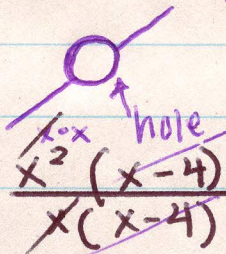 hole
x·x
x² (x-4)
x(x-4)